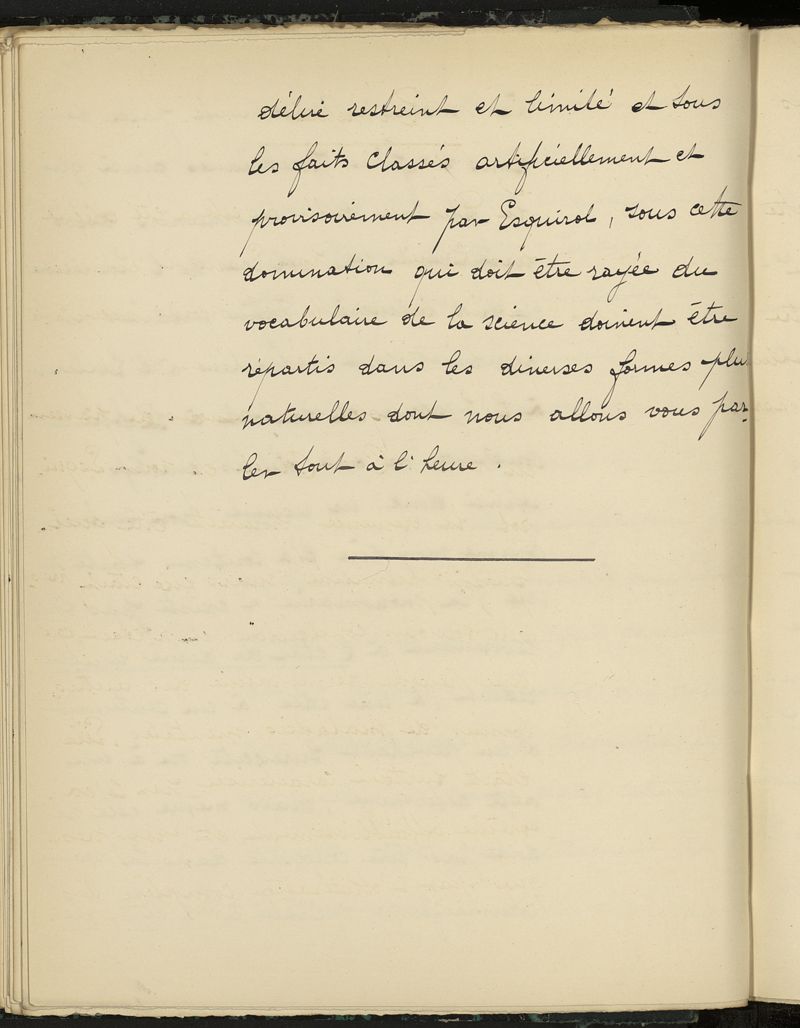 délire restreint et limité et tous
les faits classés artificiellement et
provisoirement par Esquirol, sous cette
domination qui doit être rayée du
vocabulaire de la science doivent être
répartis dans les diverses formes plus
naturelles dont nous allons vous par-
ler tout à l'heure.